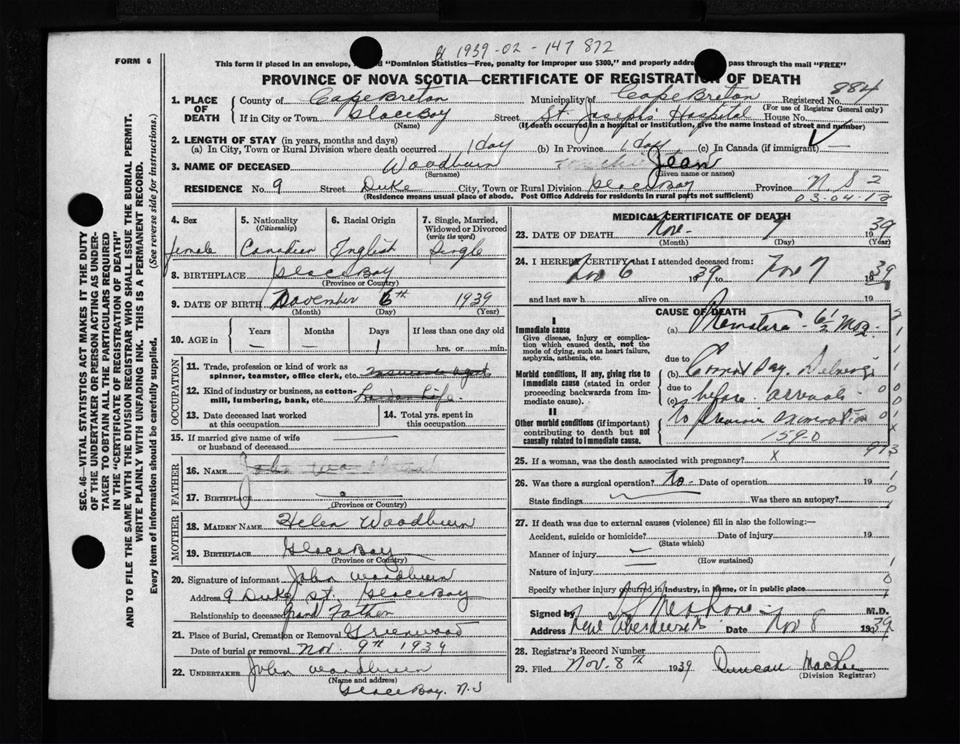 1939-02-147 872
FORM 6
This form if placed in an envelope, "Dominion Statistics—Free, penalty for improper use $300," and properly pass through the mail "FREE"
PROVINCE OF NOVA SCOTIA—CERTIFICATE OF REGISTRATION OF DEATH
884
1. PLACE OF DEATH County of Cape Breton Municipality of Cape Breton Registered No.
(For use of Registrar General only)
If in City or Town Glace Bay Street St. Joseph's Hospital House No.
(Name) (If death occurred in a hospital or institution, give the name instead of street and number)
2. LENGTH OF STAY (in years, months and days)
(a) In City, Town or Rural Division where death occurred 1 day (b) In Province 1 day (c) In Canada (if immigrant)
3. NAME OF DECEASED Woodburn Jean
(Surname) (Given name or names)
RESIDENCE No. 9 Street Duke City, Town or Rural Division Glace Bay Province N S 2
(Residence means usual place of abode. Post Office Address for residents in rural parts not sufficient)
03-04-12
SEC. 46—VITAL STATISTICS ACT MAKES IT THE DUTY OF THE UNDERTAKER OR PERSON ACTING AS UNDERTAKER TO OBTAIN ALL THE PARTICULARS REQUIRED IN THE "CERTIFICATE OF REGISTRATION OF DEATH" AND TO FILE THE SAME WITH THE DIVISION REGISTRAR WHO SHALL ISSUE THE BURIAL PERMIT.
WRITE PLAINLY WITH UNFADING INK. THIS IS A PERMANENT RECORD.
Every item of information should be carefully supplied. (See reverse side for instructions.)
4. Sex 5. Nationality (Citizenship) 6. Racial Origin 7. Single, Married, Widowed or Divorced (write the word)
female Canadian English Single
8. BIRTHPLACE Glace Bay
(Province or Country)
9. DATE OF BIRTH November 6th 1939
(Month) (Day) (Year)
10. AGE in Years Months Days If less than one day old
— — 1 hrs. or min.
OCCUPATION
11. Trade, profession or kind of work as spinner, teamster, office clerk, etc.
12. Kind of industry or business, as cotton-mill, lumbering, bank, etc.
13. Date deceased last worked at this occupation
14. Total yrs. spent in this occupation
15. If married give name of wife or husband of deceased
FATHER
16. NAME John Woodburn
17. BIRTHPLACE
(Province or Country)
MOTHER
18. MAIDEN NAME Helen Woodburn
19. BIRTHPLACE Glace Bay
(Province or Country)
20. Signature of informant John Woodburn
Address 9 Duke St. Glace Bay
Relationship to deceased Grand Father
21. Place of Burial, Cremation or Removal Greenwood
Date of burial or removal Nov. 9th 1939
22. UNDERTAKER John Woodburn
(Name and address)
Glace Bay, N.S
MEDICAL CERTIFICATE OF DEATH
23. DATE OF DEATH Nov. 7 1939
(Month) (Day) (Year)
24. I HEREBY CERTIFY that I attended deceased from:
Nov 6 1939 to Nov 7 1939
and last saw h alive on 19
CAUSE OF DEATH
I
Immediate cause
Give disease, injury or complication which caused death, not the mode of dying, such as heart failure, asphyxia, asthenia, etc.
(a) Premature - 6½ Mos.
Morbid conditions, if any, giving rise to immediate cause (stated in order proceeding backwards from immediate cause).
due to
(b)
due to
(c) before arrival
II
Other morbid conditions (if important) contributing to death but not causally related to immediate cause.
1590
973
25. If a woman, was the death associated with pregnancy? x
26. Was there a surgical operation? No - Date of operation 19
State findings Was there an autopsy?
27. If death was due to external causes (violence) fill in also the following:
Accident, suicide or homicide? Date of injury 19
(State which)
Manner of injury
(How sustained)
Nature of injury
Specify whether injury occurred in industry, in home, or in public place
Signed by M.D.
Address New Aberdeen Date Nov 8 1939
28. Registrar's Record Number
29. Filed Nov. 8th 1939 Duncan
(Division Registrar)